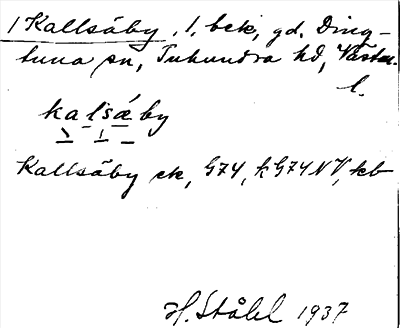 1 Kallsåby, 1, bek, gd. Ding-
tuna sn, Tuhundra hd, Västm.
l.
kalsåby
Kallsåby ek, G74, k G74 NV, kb
H. Ståhl 1937